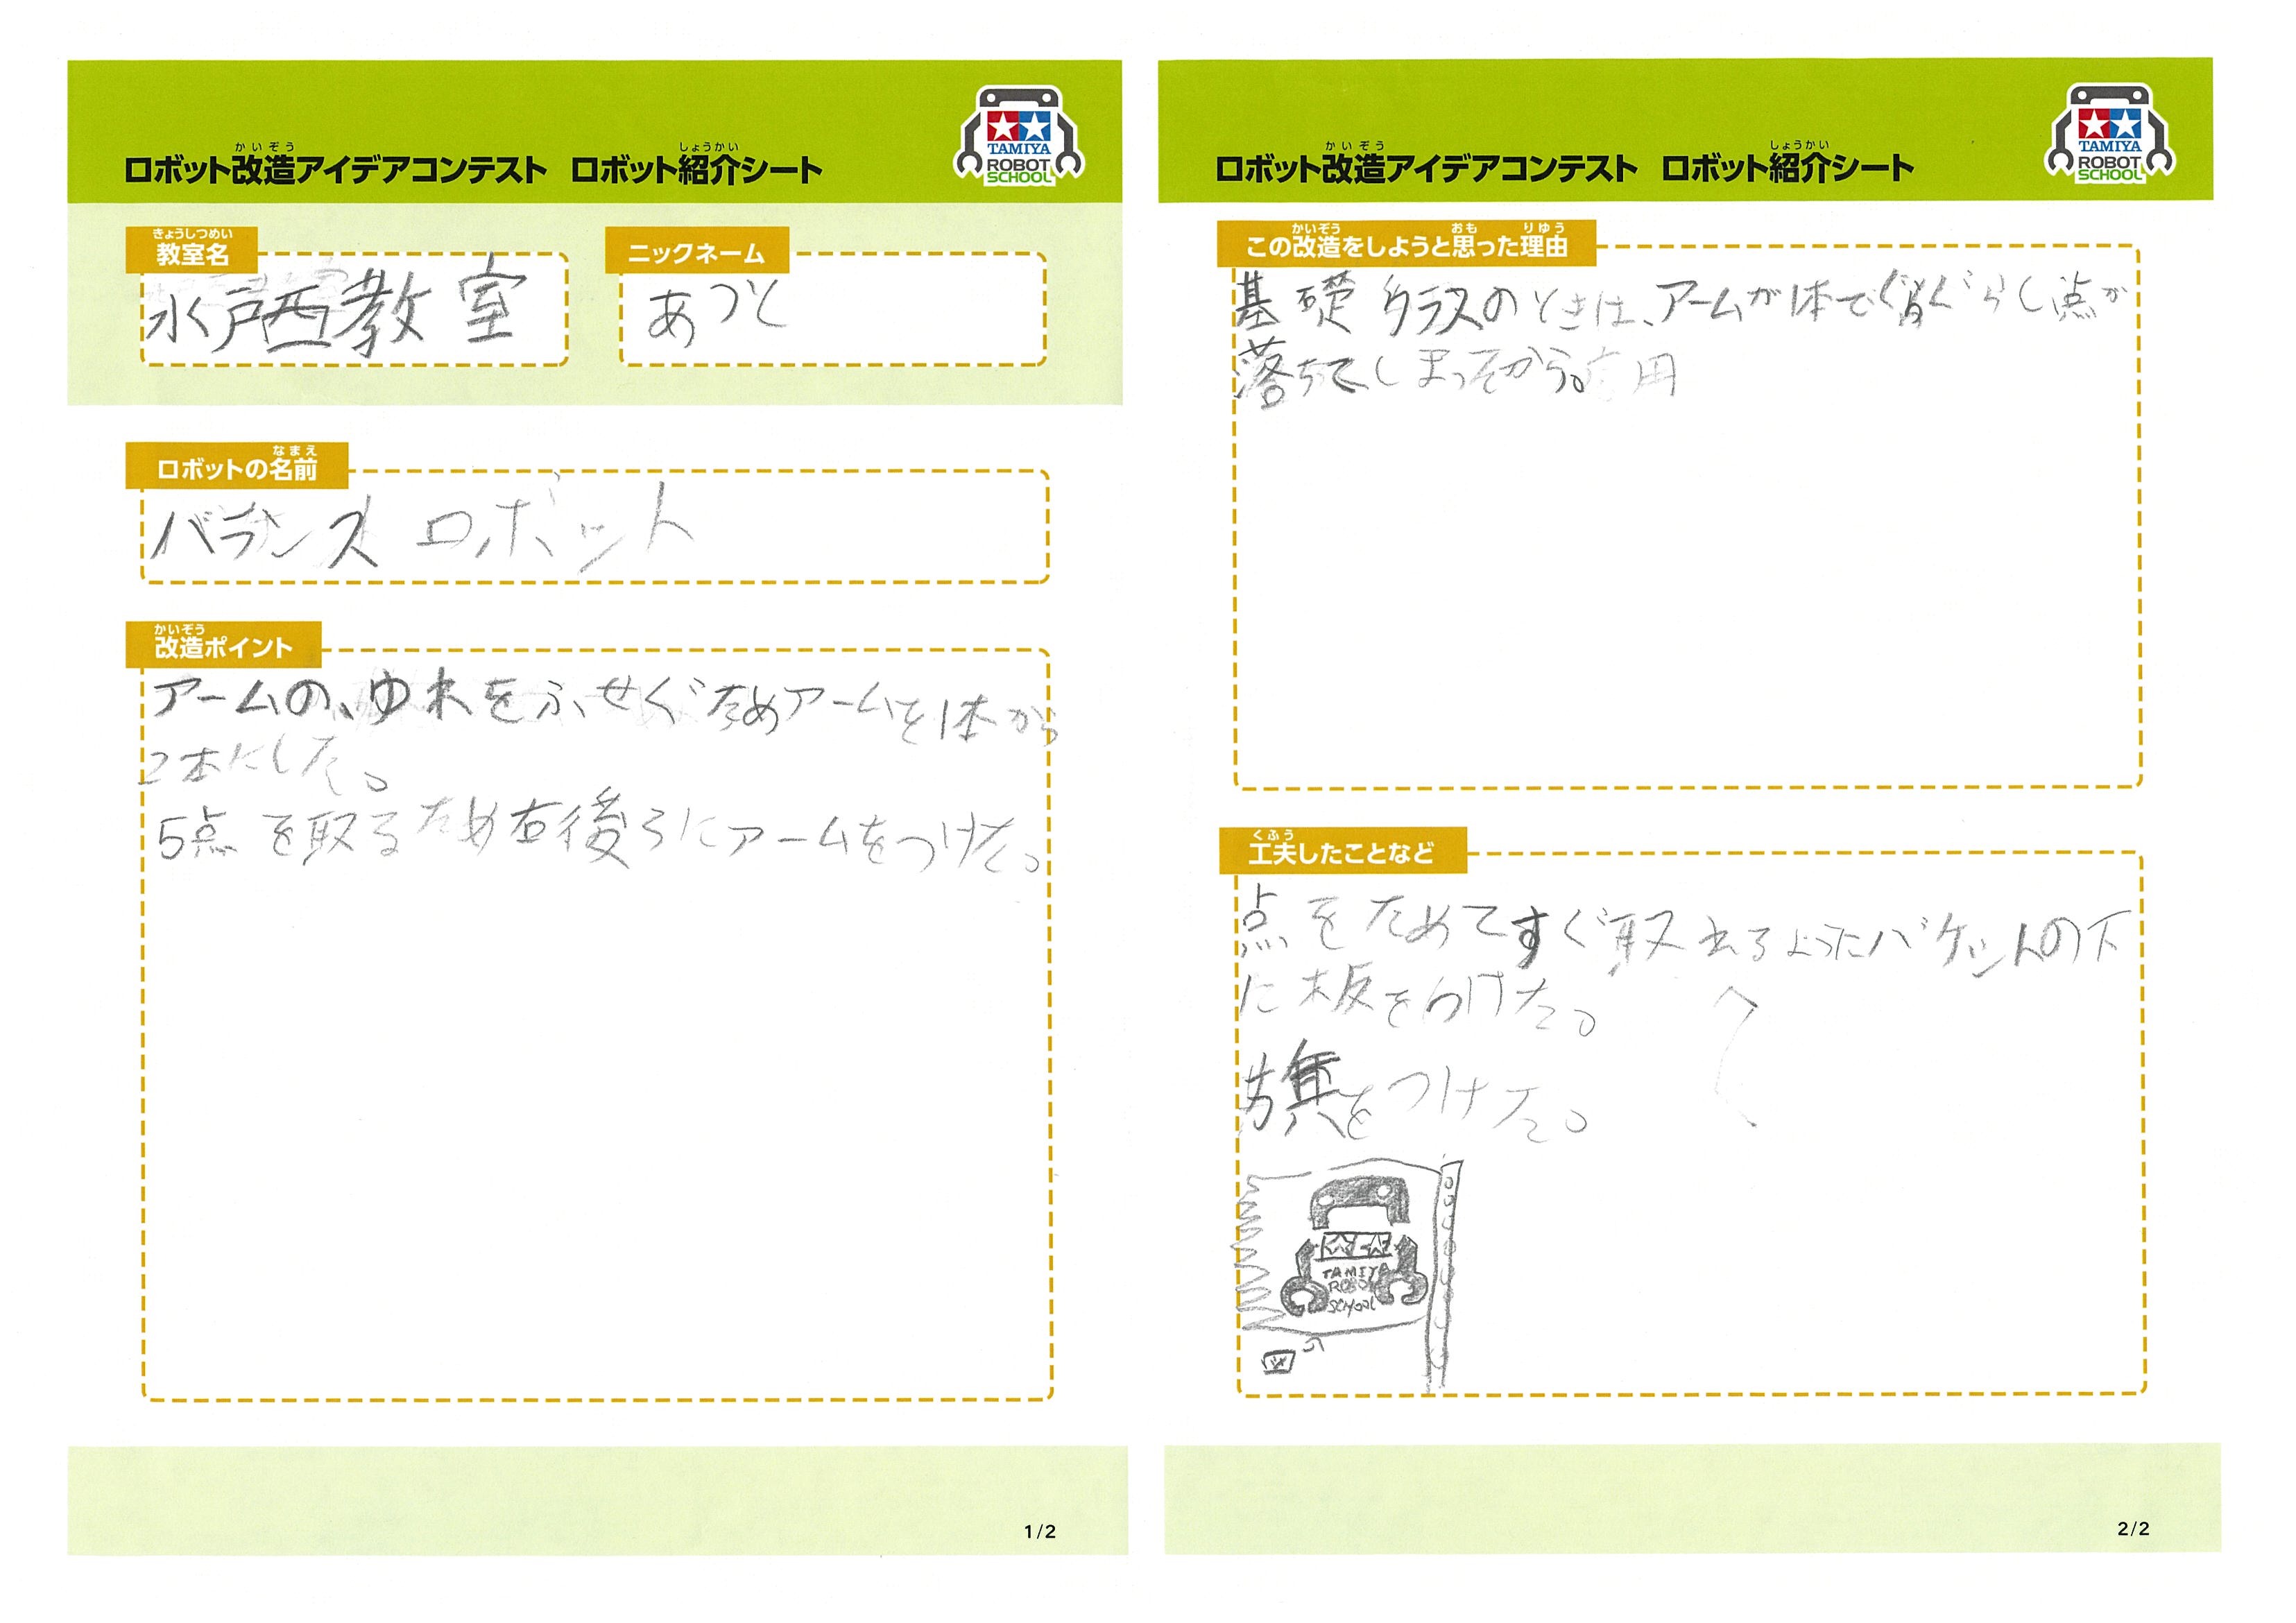 ロボット改造アイデアコンテスト ロボット紹介シート
かいぞう
しょうかい
TAMIYA
ROBOT
SCHOOL
きょうしつめい
教室名
水戸西教室
ニックネーム
あつと
なまえ
ロボットの名前
バランス ロボット
かいぞう
改造ポイント
アームの、ゆれをふせぐためアームを1本から
2本にした。
5点を取るため右後ろにアームをつけた。
1/2
ロボット改造アイデアコンテスト ロボット紹介シート
かいぞう
しょうかい
TAMIYA
ROBOT
SCHOOL
かいぞう
おも
りゆう
この改造をしようと思った理由
基礎クラスのときは、アームが1本でぐらぐらし点が
落ちてしまったから。応用
くふう
工夫したことなど
点をためてすぐ取れるようにバケットの下
に板をつけた。
旗をつけた。
TAMIYA
ROBOT
SCHOOL
2/2